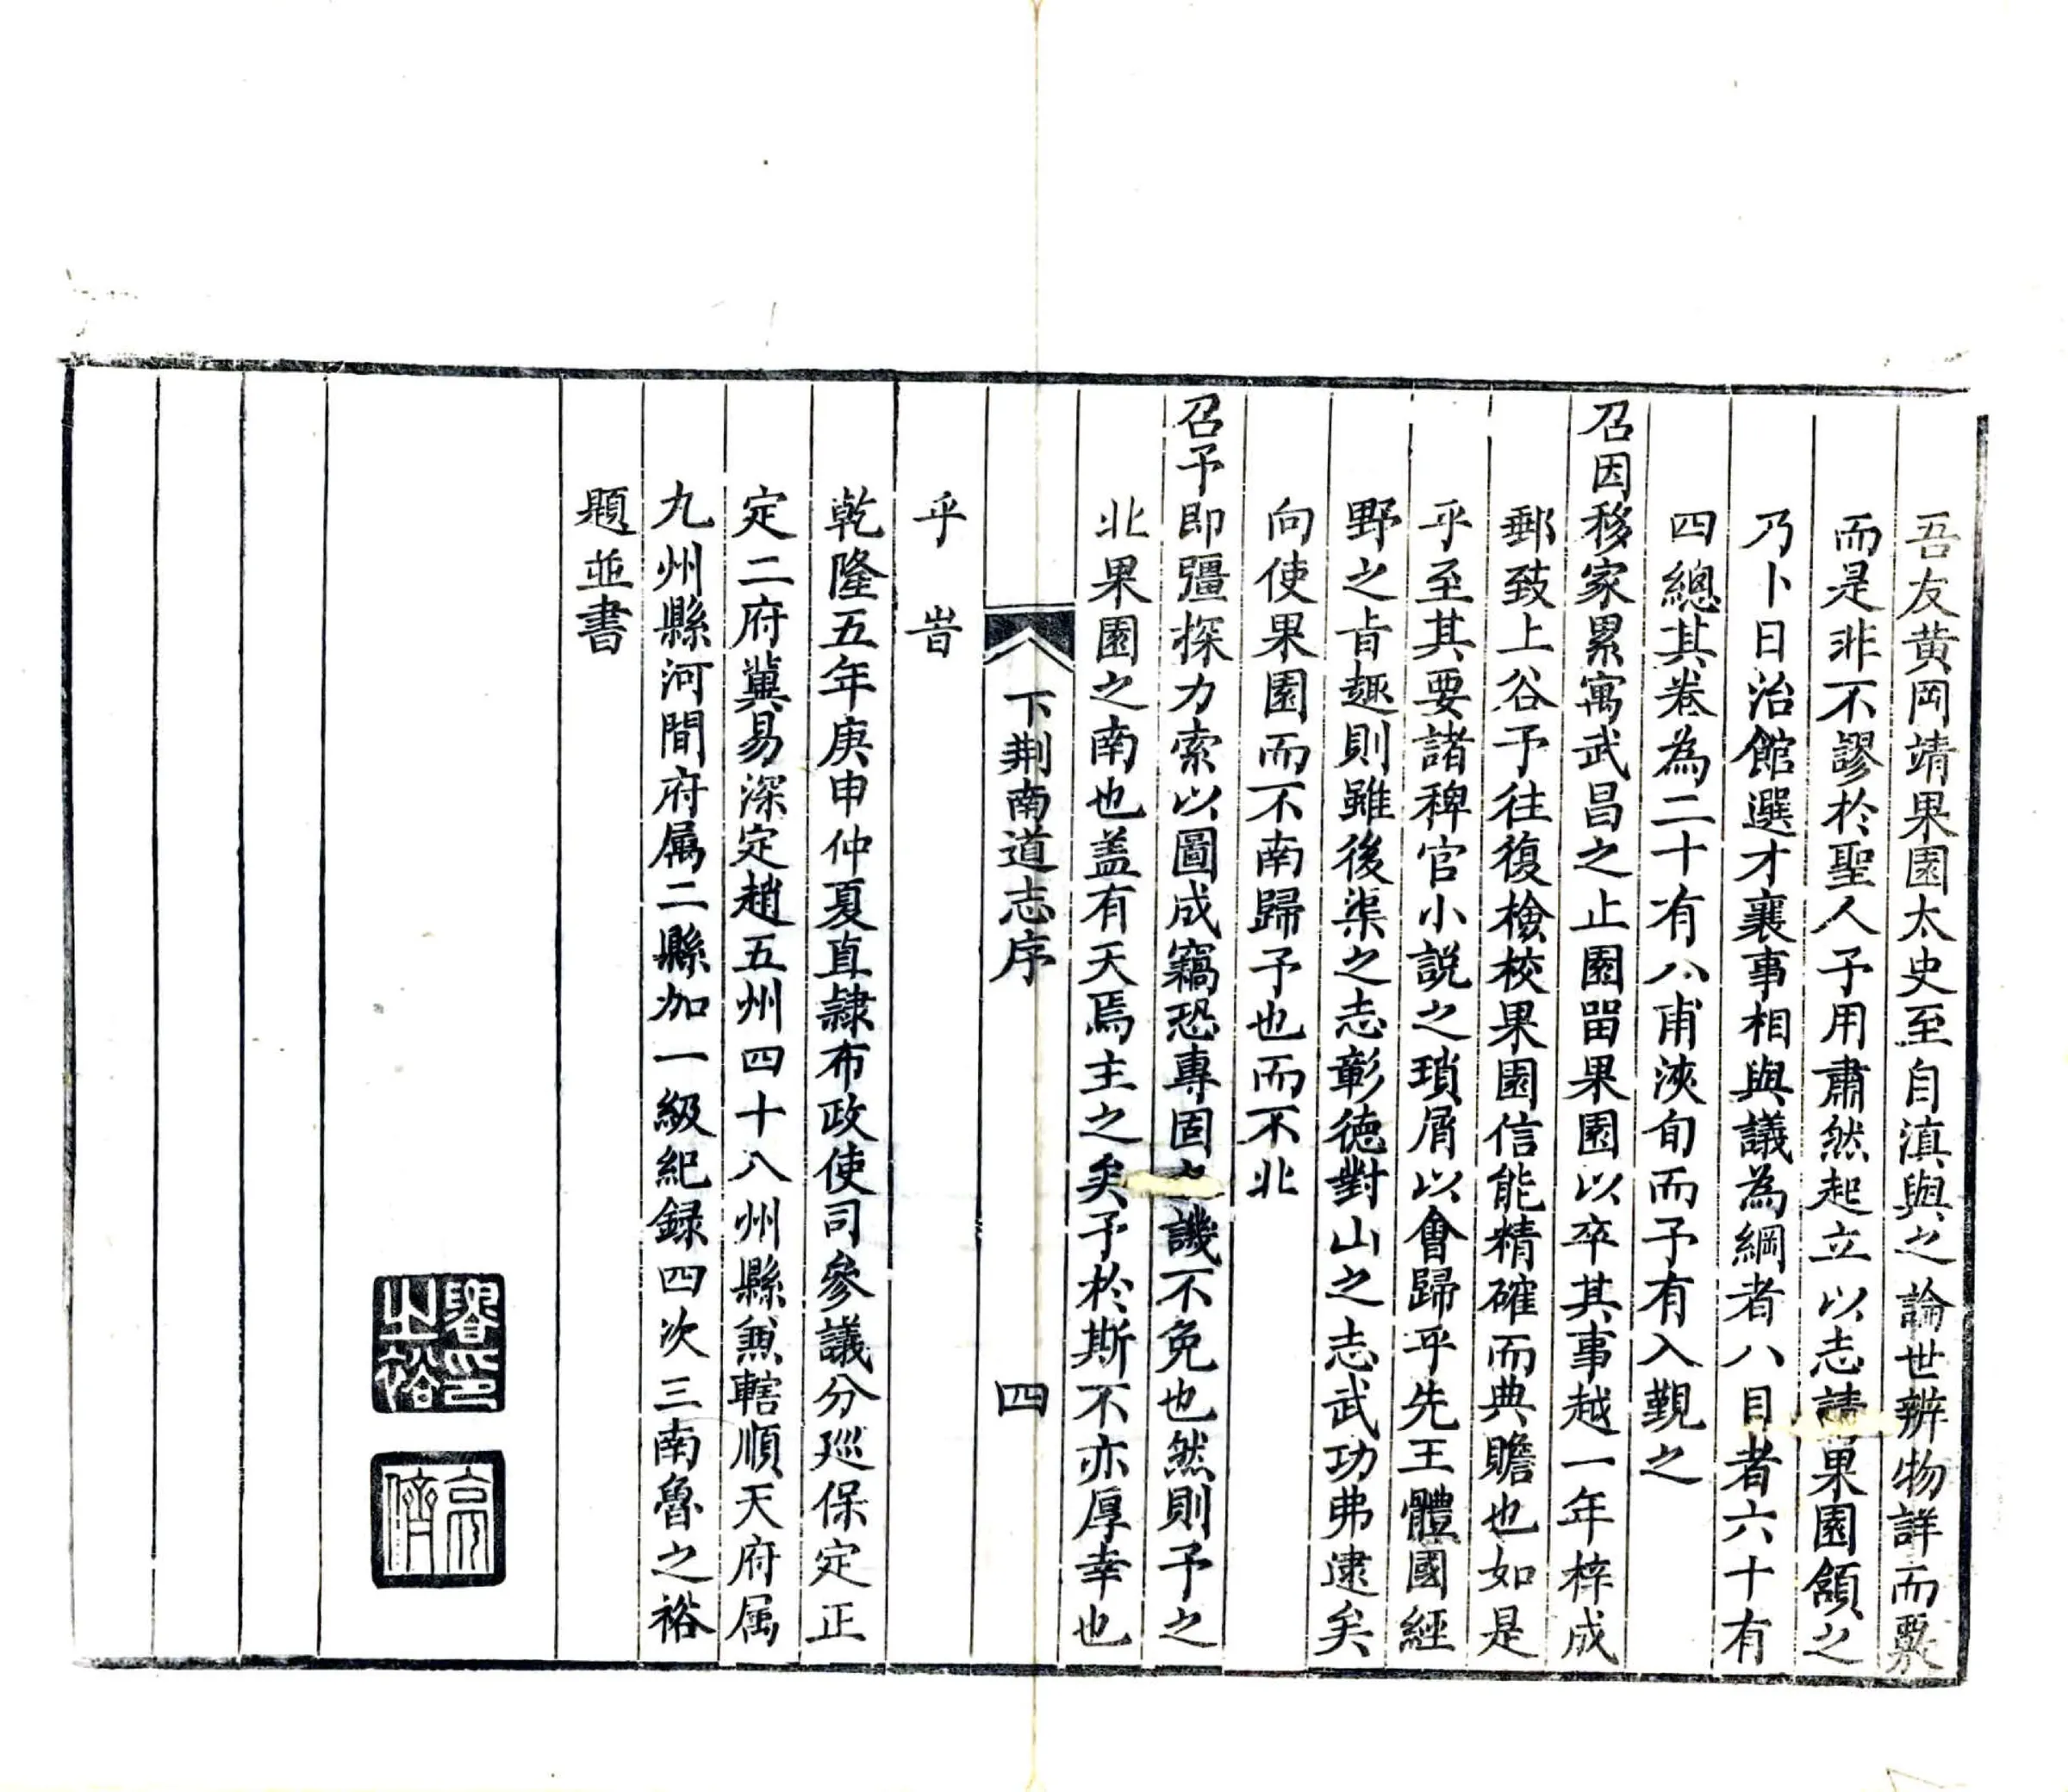 吾友黄岡靖果園太史至自滇與之論世辨物詳而覈
而是非不謬於聖人予用肅然起立以志請果園頷之
乃卜日治館選才襄事相與議為綱者八目者六十有
四總其卷為二十有八甫浹旬而予有入覲之
召因移家累寓武昌之止園畱果園以卒其事越一年梓成
郵致上谷予往復檢校果園信能精確而典贍也如是
乎至其要諸稗官小説之瑣屑以會歸乎先王體國經
野之㫖趣則雖後渠之志彰德對山之志武功弗逮矣
向使果園而不南歸予也而不北
召予即彊探力索以圖成竊恐專固之譏不免也然則予之
北果園之南也盖有天焉主之矣予於斯不亦厚幸也
下荆南道志序 四
乎旹
乾隆五年庚申仲夏直隷布政使司參議分廵保定正
定二府冀易深定趙五州四十八州縣兼轄順天府属
九州縣河間府属二縣加一級紀録四次三南魯之裕
題並書
魯之裕印
亮儕